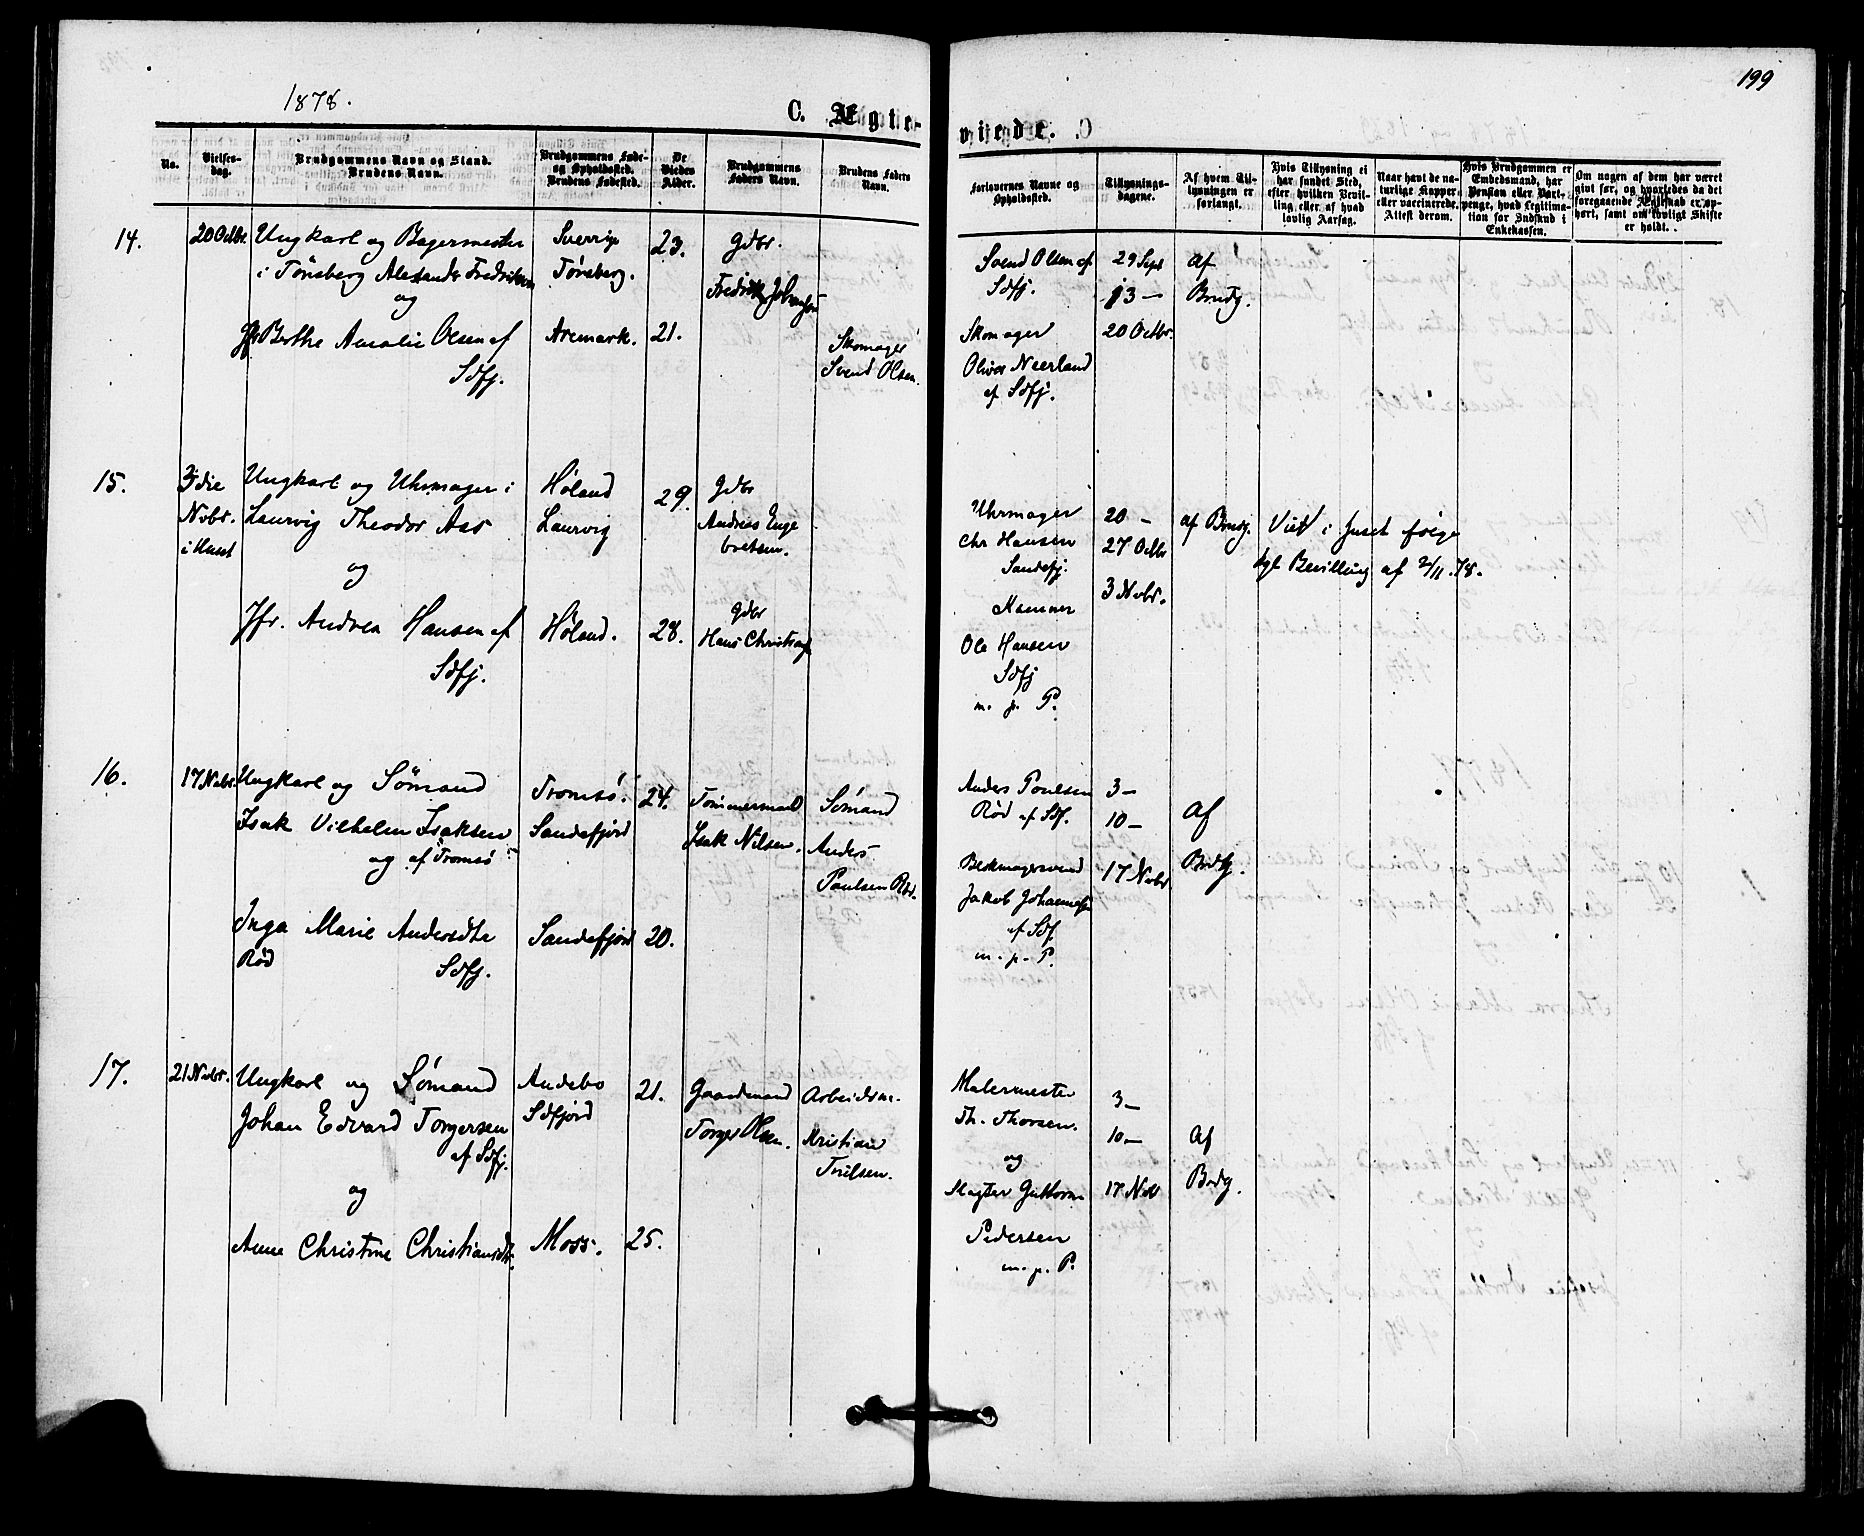 1878.
199
C. Ægte-
viede.
No.
Vielses-
dag.
Brudgommens Navn og Stand.
Brudens Navn.
Brudgommens Føde-
og Opholdssted.
Brudens Fødested.
De
Viedes
Alder.
Brudgommens
Faders Navn.
Brudens Faders
Navn.
Forlovernes Navne og
Opholdssted.
Tillysnings-
dagene.
Af hvem Til-
lysningen er
forlangt.
Hvis Tillysning ei
har fundet Sted,
efter hvilken Bevil-
ling eller af hvad
lovlig Aarsag.
Naar havt de na-
turlige Kopper,
eller vaccinerede.
Attest derom.
Hvis Brudgommen er
Embedsmand, har
Pension eller Vart-
penge, hvad Legitima-
tion for Indskud i
Enkekassen.
Om nogen af dem har været
gift før, og hvorledes da det
foregaaende Ægteskab er op-
hørt, samt om lovligt Skifte
er holdt.
14.
20 Octbr.
Ungkarl og Bagermester
i Tønsberg Alexander Fredriksen
og
Jfr Berthe Amalie Olsen af
Sdfj.
Sverrige
Tønsberg.
Aremark.
23.
21.
Gdbr.
Fredrik Johansson
Skomager
Svend Olsen.
Svend Olsen af
Sdfj.
Skomager
Oliver Neerland
af Sdfj.
29 Sept
13 —
20 Octbr.
Af
Brudg.
15.
3die
Nvbr.
i Huset
Ungkarl og Uhrmager i
Laurvig Theodor Aas
og
Jfr. Andrea Hansen af
Sdfj.
Høland
Laurvig
Høland.
29.
28.
Gdbr
Andreas Enge
bretsen.
Gdbr
Hans Christians
Uhrmager
Chr Hansen
Sandefj.
Ole Hansen
Sdfj
m. p. P.
20 —
27 Octbr
3 Nvbr.
af Brudg.
Viet i huset følge
kgl Bevilling af 2/11.78.
16.
17 Nvbr.
Ungkarl og Sømand
Isak Vilhelm Isaksen
og af Tromsø
Inga Marie Andersdtr
Rød
Sdfj.
Tromsø.
Sandefjord
Sandefjord
24.
20.
Tømmermand
Isak Nilsen.
Sømand
Anders
Paulsen Rød.
Anders Poulsen
Rød af Sdf.
Jakob Johannesen
af Sdf
m. p. P.
3 —
10 —
17 Nvbr
Af
Brdg.
17.
21 Nvbr.
Ungkarl og Sømand
Johan Edvard Torgersen
af Sdfj.
og
Anne Christine Christiansdtr.
Andebo
Sdfjord
Moss.
21.
25.
Gaardmand
Torger Olsen.
Arbeidsm.
Kristian
Truilsen.
Malermester
Th. Thorsen.
og
Slagter Guttorm
Pedersen
m. p. P.
3 —
10 —
17 Nvbr
Af
Brdg.